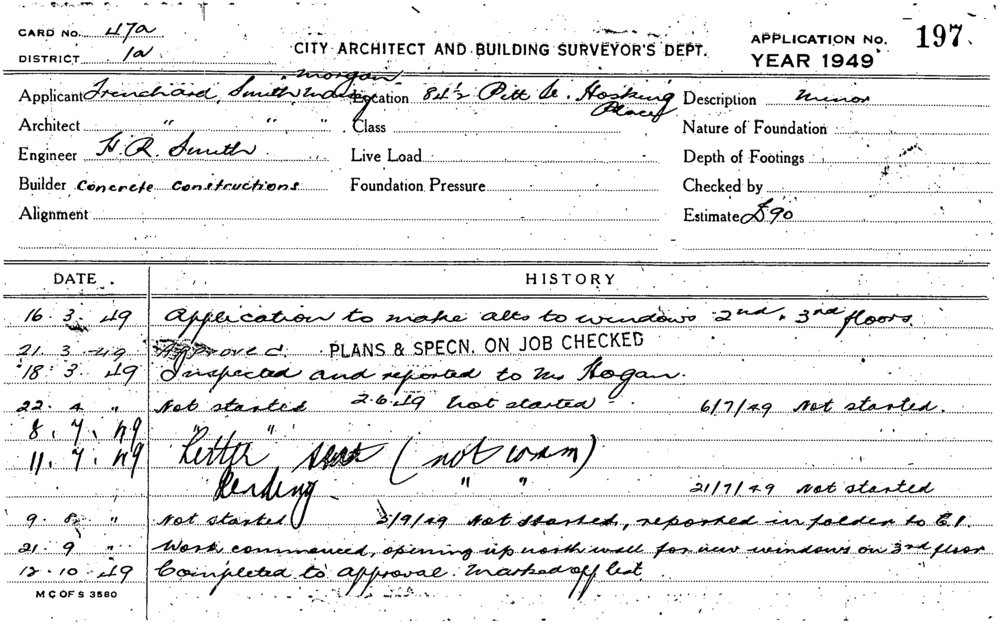 CARD NO. 47a
DISTRICT 1a
CITY ARCHITECT AND BUILDING SURVEYOR'S DEPT.
APPLICATION NO. 197.
YEAR 1949
Morgan
Applicant Trenchard, Smith
Location 84½ Pitt & Hosking Place
Description Minor
Architect " " "
Class
Nature of Foundation
Engineer H. R. Smith
Live Load
Depth of Footings
Builder Concrete Constructions
Foundation Pressure
Checked by
Alignment
Estimate £90
DATE HISTORY
16 . 3 . 49 Application to make alts to windows 2nd & 3rd floors.
21 . 3 . 49 Approved. PLANS & SPECN. ON JOB CHECKED
18 . 3 . 49 Inspected and reported to Mr Hogan.
22 . 4 " Not started 2.6.49 Not started 6/7/49 Not started.
8 . 7 . 49 "Letter"
11 . 7 . 49 sent (not
Pending " " 21/7/49 Not started
9 . 8 " Not started 2/9/49 Not started, reported in folder to C.I.
21 . 9 " Work commenced, opening up north wall for new windows on 3rd floor
12 . 10 . 49 Completed to approval. Marked off list
M C OF S 3580